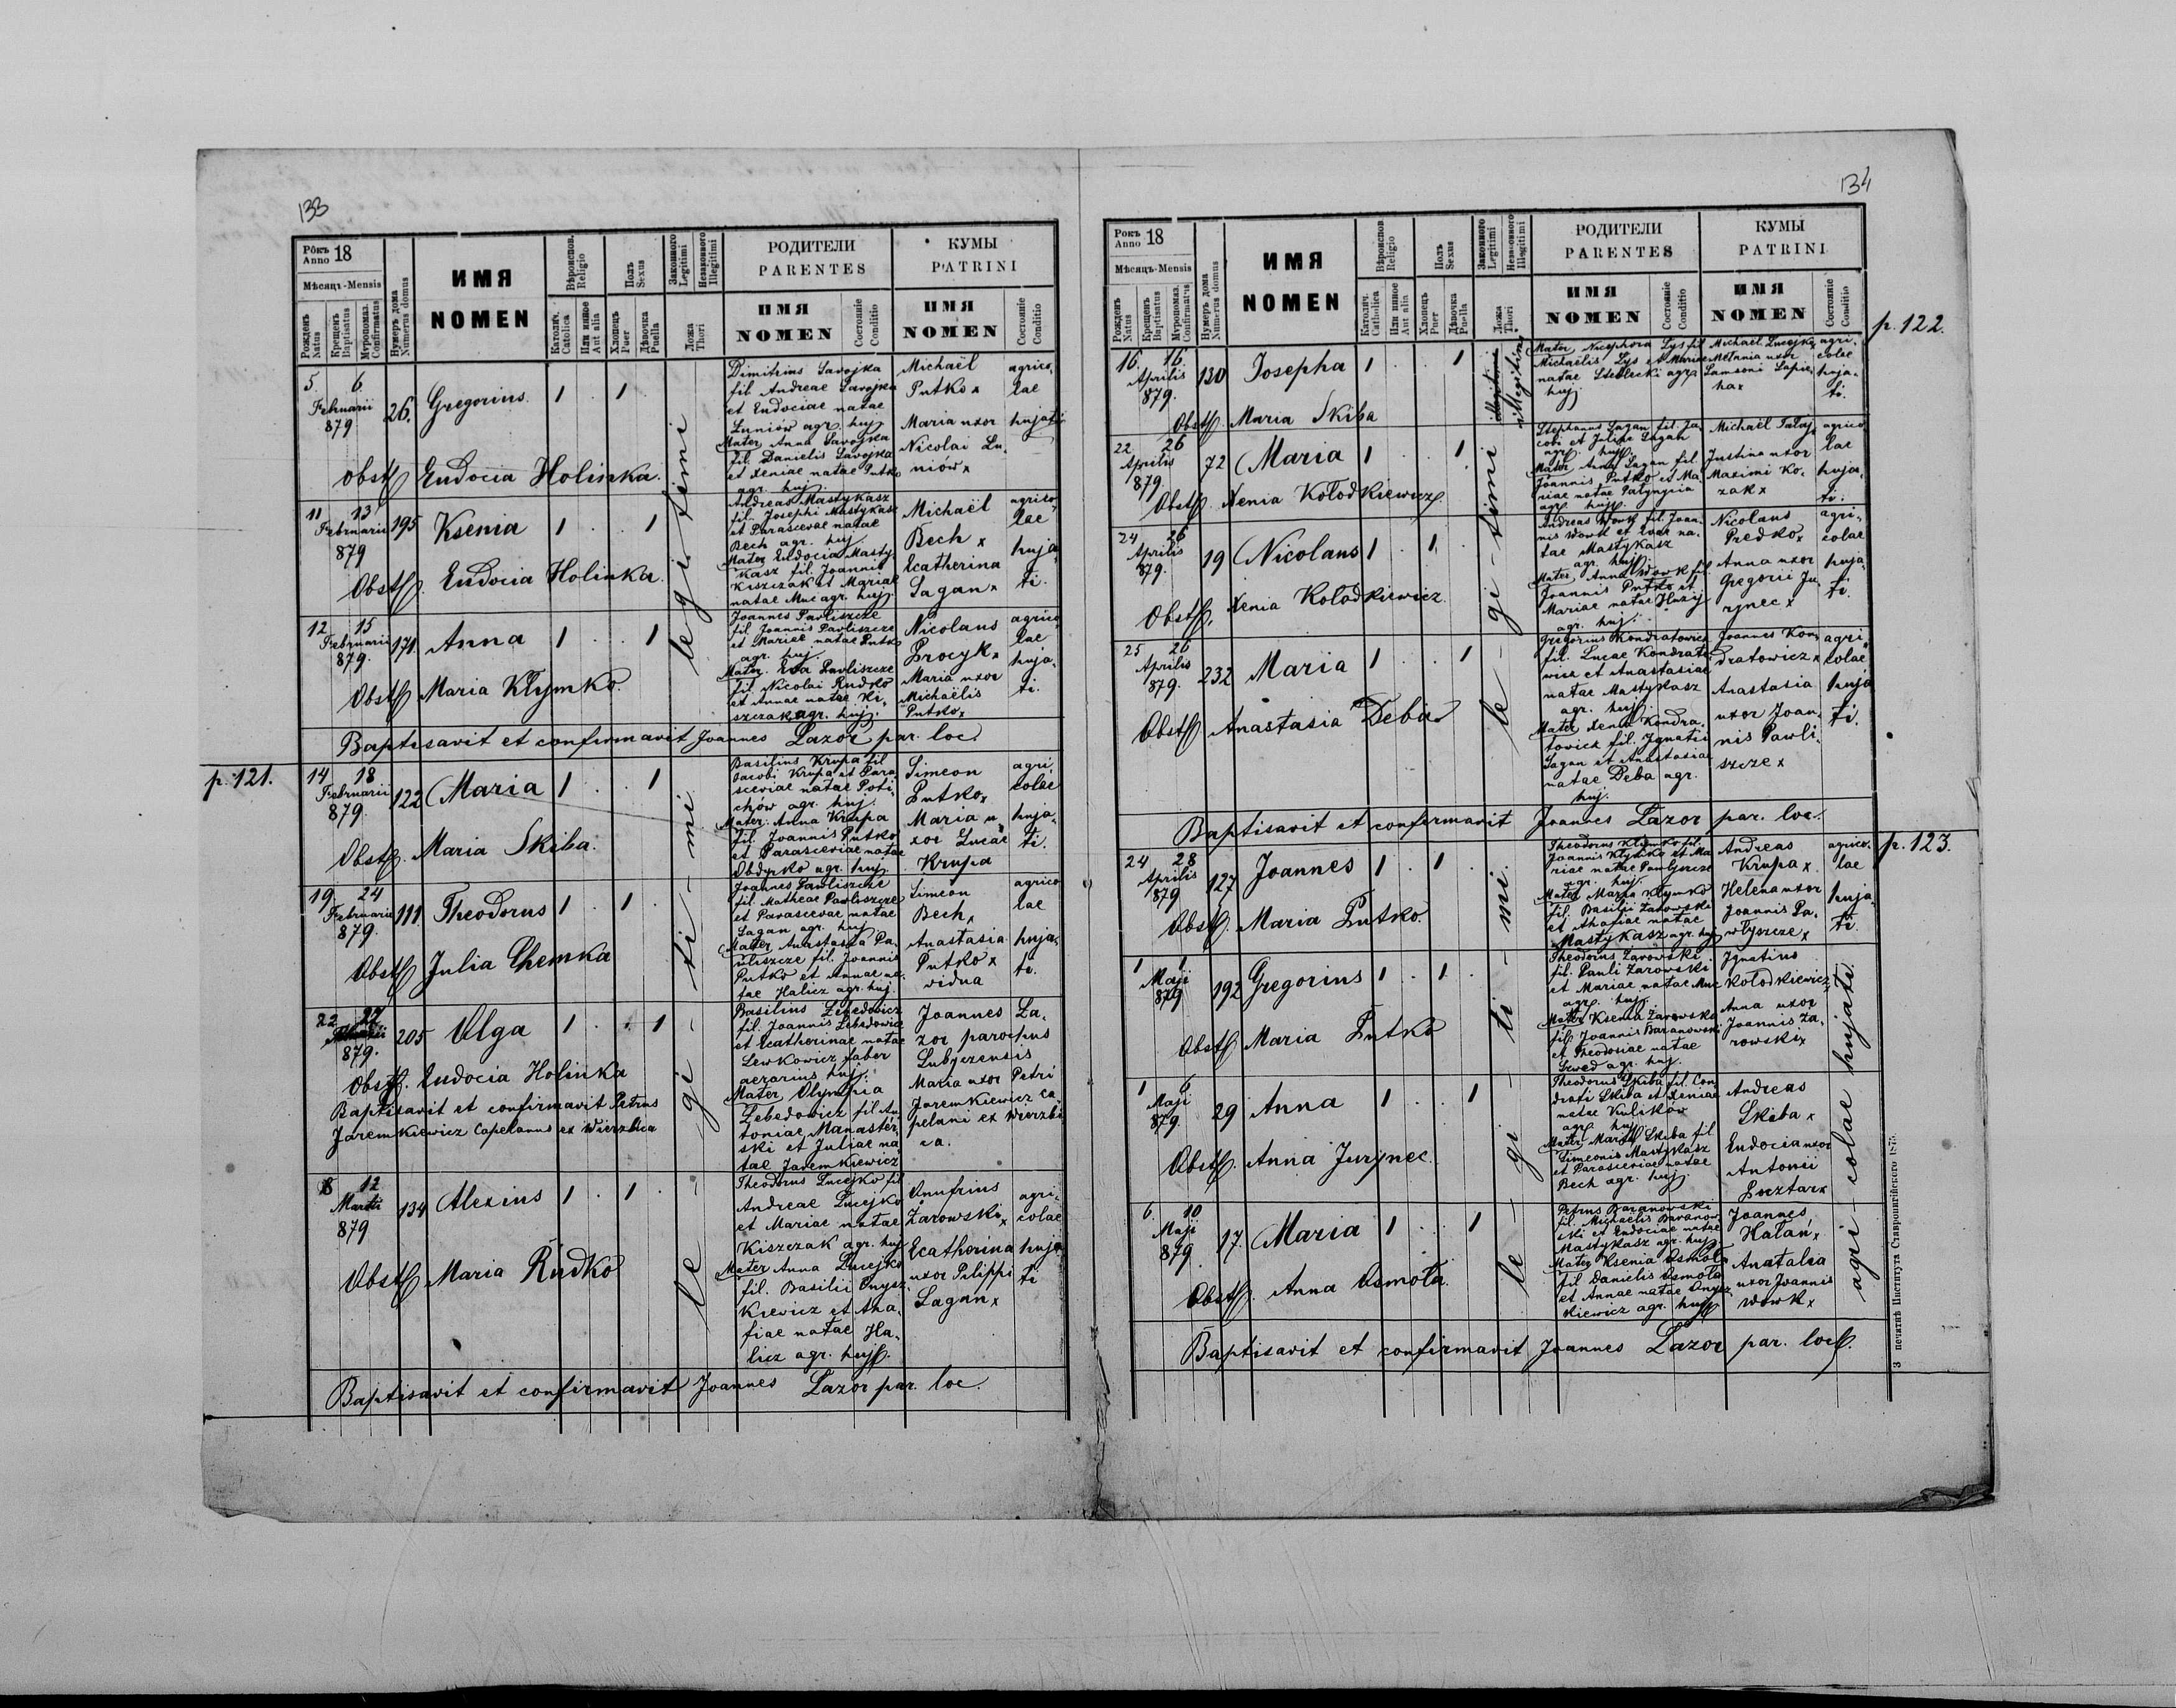 133
Рôкъ Anno 18
Мѣсяцъ-Mensis
Рожденъ Natus
Крещенъ Baptisatus
Мѵропомаз. Confirmatus
Нумеръ дома Numerus domus
ИМЯ
NOMEN
Вѣроиспов. Religio
Католич. Catolica
Или инное Aut alia
Полъ Sexus
Хлопець Puer
Дѣвочка Puella
Законного Legitimi
Незаконного Illegitimi
Ложа Thori
РОДИТЕЛИ
PARENTES
ИМЯ
NOMEN
Состояніе Conditio
КУМЫ
PATRINI
ИМЯ
NOMEN
Состояніе Conditio
5. 6
Februarii
879
26.
Gregorius
1 . 1
Dimitrius Savojka
fil Andreae Savojka
et Eudociae natae
Luniów agr. huj
Mater Anna Savojka
fil. Danielis Savojka
et Xeniae natae Putko
agr. huj.
Michaël
Putko x
Maria uxor
Nicolai Lu-
niów x
agrico-
lae
hujati
Obst Eudocia Holinka.
legitimi
11 13
Februarii
879
195
Ksenia
1 . . 1
Andreas Mastykasz
fil. Josephi Mastykasz
et Parascevae natae
Bech agr. huj
Mater Eudocia Masty-
kasz fil. Joannis
Kiszczak et Mariae
natae Muc agr. huj.
Michaël
Bech x
Ecatherina
Sagan x
agrico-
lae
huja-
ti.
Obst. Eudocia Holinka.
12 15
Februarii
879.
171.
Anna
1 . . 1
Joannes Pavliszcze
fil. Joannis Pavliszcze
et Mariae natae Putko
agr. huj.
Mater. Eva Pavliszcze
fil Nicolai Rudko
et Annae natae Ki-
szczak agr. huj.
Nicolaus
Procyk x
Maria uxor
Michaëlis
Putko x
agrico-
lae
huja-
ti.
Obst Maria Klymko.
Baptisavit et confirmavit Joannes Lazor par. loc.
p. 121.
14 18
Februarii
879.
122
Maria
1 . . 1
Basilius Krupa fil
Jacobi Krupa et Para-
sceviae natae Poti-
chów agr. huj.
Mater: Anna Krupa
fil. Joannis Putko
et Parasceviae natae
Obdyrko agr. huj.
Simeon
Putko x
Maria u-
xor Lucae
Krupa
agri-
colae
huja-
ti.
Obst. Maria Skiba.
19. 24
Februarii
879.
111.
Theodorus
1 . 1 .
Joannes Pawliszcze
fil. Matheae Pawliszcze
et Parascevae natae
Sagan agr. huj
Mater, Anastasia Pa-
vliszcze fil. Joannis
Putko et Annae na-
tae Halicz agr. huj.
Simeon
Bech x
Anastasia
Putko x
vidua
agrico
lae
huja-
ti.
Obst Julia Chemka
le - gi - ti - mi
22. 22
879.
205
Olga
1 . . 1
Basilius Lebedowicz
fil. Joannis Lebedowicz
et Ecatherinae natae
Lewkowicz faber
aerarius huj.
Mater Olympia
Lebedowicz fil An-
toniae Manaster-
ski et Juliae na-
tae Jaremkiewicz
Joannes La-
zor parochus
Lubyczensis
Maria uxor Petri
Jaremkiewicz ca-
pelani ex Wierzbi
ca.
Obst. Eudocia Holinka
Baptisavit et confirmavit Petrus
Jaremkiewicz Capelanus ex Wierzbica
8 12
Martii
879
134
Alexius
1 . 1 .
Theodorus Lucejko fil
Andreae Lucejko
et Mariae natae
Kiszczak agr. huj
Mater Anna Lucejko
fil. Basilii Onysz-
kiewicz et Aha-
fiae natae Ha-
licz agr. huj.
Onufrius
Żarowski x
Ecatherina
uxor Pilippi
Sagan x
agri-
colae
huja-
ti
Obst Maria Rudko
Baptisavit et confirmavit Joannes Lazor par. loc.
134
Рокъ Anno 18
Мѣсяцъ-Mensis
Рожденъ Natus
Крещенъ Baptisatus
Мѵропомаз. Confirmatus
Нумеръ дома Numerus domus
ИМЯ
NOMEN
Вѣроиспов Religio
Католич. Catholica
Или инное Aut alia
Полъ Sexus
Хлопець Puer
Дѣвочка Puella
Законного Legitimi
Незаконного Illegitimi
Ложа Thori
РОДИТЕЛИ
PARENTES
ИМЯ
NOMEN
Состояніе Conditio
КУМЫ
PATRINI
ИМЯ
NOMEN
Состояніе Conditio
p. 122.
16. 16.
Aprilis
879.
130
Josepha
1 . . 1
illegitimi
Mater Nicephora Lys fil
Michaëlis Lys et Mariae
natae Steblecki agr.
huj
Michael Lucejko x
Melania uxor
Samsoni Sapie-
ha x
agri-
colae
huja-
ti.
Obst. Maria Skiba
22 26
Aprilis
879.
72
Maria
1 . . 1
Stephanus Sagan fil. Ja-
cobi et Juliae Sagan
agr. huj.
Mater Anna Sagan fil.
Joannis Putko et Ma-
riae natae
agr. huj.
Michaël Tataj x
Justina uxor
Maximi Ko-
zak x
agrico
lae
huja-
ti.
Obst. Xenia Kolodkiewicz.
24 26
Aprilis
879.
19
Nicolaus
1 . 1 .
Andreas Wowk fil. Joan-
nis Wowk et Evae na-
tae Mastykasz
agr. huj.
Mater Anna Wowk fil
Joannis Putko et
Mariae natae Huzij
agr. huj.
Nicolaus
Predko x
Anna uxor
Gregorii Ju-
rynec x
agri-
colae
huja-
ti.
Obst. Xenia Kolodkiewicz.
25 26
Aprilis
879.
232
Maria
1 . . 1
Gregorius Kondratowicz
fil. Lucae Kondrato-
wicz et Anastasiae
natae Mastykasz
agr. huj.
Mater Xenia Kondra-
towicz fil. Ignatii
Sagan et Anastasiae
natae Deba agr.
huj.
Joannes Kon-
dratowicz x
Anastasia
uxor Joan-
nis Pawli-
szcze x
agri-
colae
huja
ti.
Obst Anastasia Deba
le - gi - timi
Baptisavit et confirmavit Joannes Lazor par. loc.
p. 123.
24 28
Aprilis
879
127
Joannes
1 . 1 .
Theodorus Klymko fil.
Joannis Klymko et Ma
riae natae Pawlyszcze
agr. huj.
Mater Maria Klymko
fil. Basilii Żarowski
et Ahafiae natae
Mastykasz agr. huj
Andreas
Krupa x
Helena uxor
Joannis Pa-
wlyszcze x
agrico-
lae
huja-
ti.
Obst. Maria Putko
1 1
Maji
879
192
Gregorius
1 . 1 .
Theodorus Żarowski
fil. Pauli Żarowski
et Mariae natae Muc
agr. huj.
Mater Ksenia Żarowska
fil. Joannis Baranowski
et Theodosiae natae
Szwed agr. huj.
Ignatius
Kolodkiewicz
Anna uxor
Joannis Ża-
rowski x
Obst Maria Putko
1 6
Maji
879.
29
Anna
1 . . 1
Theodorus Skiba fil. Con-
drati Skiba et Xeniae
natae Kulików
agr. huj
Mater Maria Skiba fil
Simeonis Mastykasz
et Parasceviae natae
Bech agr. huj
Andreas
Skiba x
Eudocia uxor
Antonii
Pocztar x
Obst. Anna Jurynec.
6. 10
Maji
879.
17.
Maria
1 . . 1
Petrus Baranowski
fil. Michaelis Baranow-
ski et Eudociae natae
Mastykasz agr. huj.
Mater Ksenia Osmoła
fil Danielis Osmoła
et Annae natae Onysz-
kiewicz agr. huj
Joannes
Katan x
Anatalia
uxor Joannis
Wowk x
Obst. Anna Osmoła.
le - gi - ti - mi.
agri - colae hujati
Baptisavit et confirmavit Joannes Lazor par. loc.
З печатнѣ Института Ставропигійского 1875.